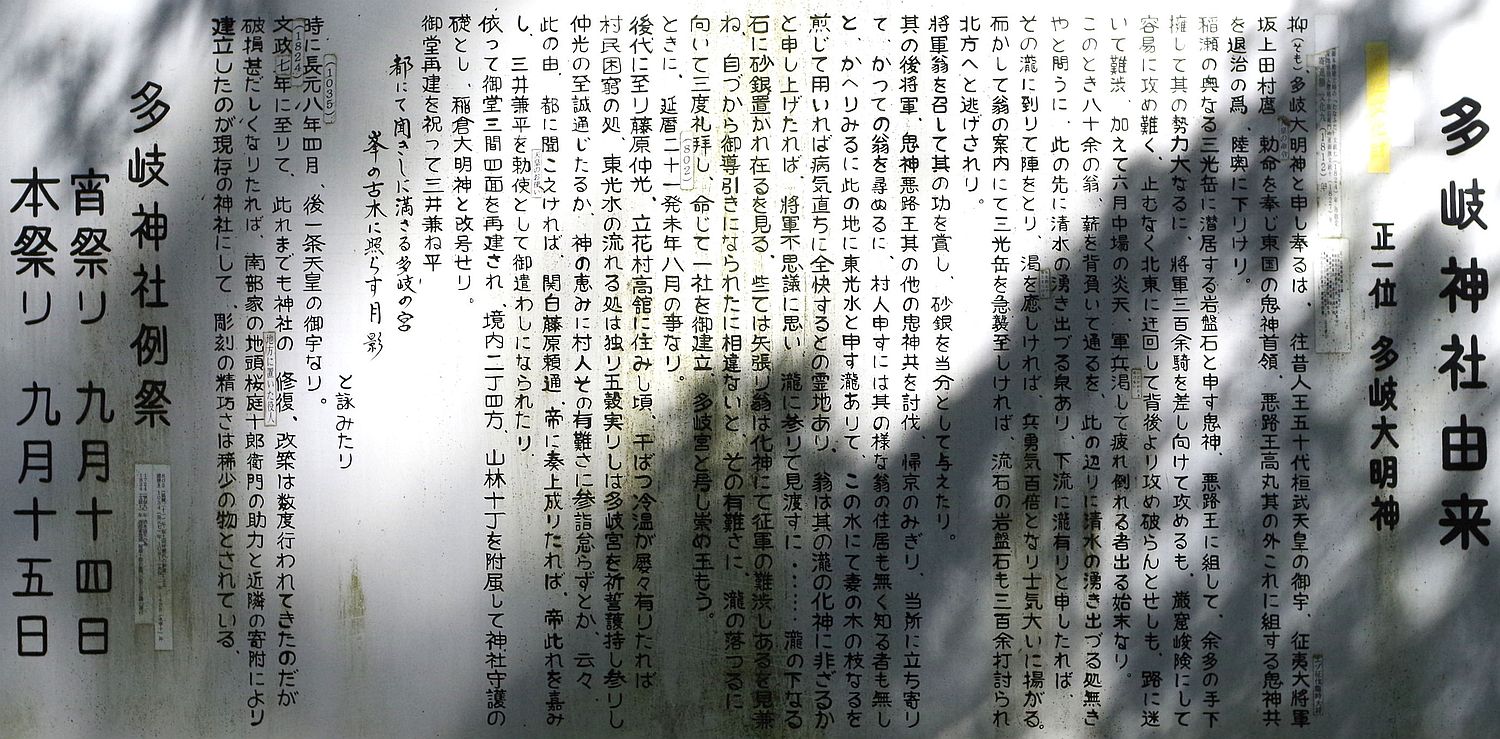 多岐神社由来
正一位 多岐大明神
抑(そも)、多岐大明神と申し奉るは、往昔人王五十代桓武天皇の御宇、征夷大将軍
坂上田村麿 勅命を奉じ東国の悪神首領、悪路王高丸其の外これに組する悪神共
を退治の爲、陸奥に下りけり。
稲瀬の奥なる三光岳に潜居する岩盤石と申す鬼神、悪路王に組して、余多の手下
擁して其の勢力大なるに、將軍三百余騎を差し向けて攻めるも、巌窟峻険にして
容易に攻め難く、止むなく北東に迂回して背後より攻め破らんとせしも、路に迷
いて難渋、加えて六月中場の炎天、軍兵渇して疲れ倒れる者出る始末なり。
このとき八十余の翁、薪を背負いて通るを、此の辺りに清水の湧き出づる処無き
やと問うに、此の先に清水の湧き出づる泉あり、下流に瀧有りと申したれば、
その瀧に到りて陣をとり、渇を癒しければ、兵勇気百倍となり士気大いに揚がる。
而かして翁の案内にて三光岳を急襲至しければ、流石の岩盤石も三百余打討られ
北方へと逃げされり。
將軍翁を召して其の功を賞し、砂銀を当分として与えたり。
其の後將軍、悪神悪路王其の他の悪神共を討伐、帰京のみぎり、当所に立ち寄り
て、かつての翁を尋ぬるに、村人申すには其の様な翁の住居も無く知る者も無し
と、かへりみるに此の地に東光水と申す瀧ありて、この水にて妻の木の枝なるを
煎じて用いれば病気直ちに全快するとの霊地あり、翁は其の瀧の化神に非ざるか
と申し上げたれば、將軍不思議に思い、瀧に参りて見渡すに‥‥‥瀧の下なる
石に砂銀置かれ在るを見る、些ては矢張り翁は化神にて征軍の難渋しあるを見兼
ね、自づから御導引きになられたに相違ないと、その有難さに、瀧の落つるに
向いて三度礼拝し、命じて一社を御建立、多岐宮と号し崇め玉もう。
(802)
ときに、延暦二十一発未年八月の事なり。
後代に至り藤原仲光、立花村高舘に住みし頃、干ばつ冷温が屡々有りたれば
村民困窮の処、東光水の流れる処は独り五穀実りしは多岐宮を祈誓護持し参りし
仲光の至誠通じたるか、神の恵みに村人その有難さに参詣怠らずとか、云々
此の由、都に聞こえければ、関白藤原頼通、帝に奏上成りたれば、帝此れを嘉み
天皇のお使い
し、三井兼平を勅使として御遣わしになられたり
依って御堂三間四面を再建され、境内二丁四方、山林十丁を附属して神社守護の
礎とし、稲倉大明神と改号せり。
御堂再建を祝って三井兼ね平
都にて聞きしに満さる多岐の宮
峯の古木に照らす月影
と詠みたり
(1035)
時に長元八年四月、後一条天皇の御宇なり。
(1824)
文政七年に至りて、此れまでも神社の 修復、改築は数度行われてきたのだが
地方に置いた役人
破損甚だしくなりたれば、南部家の地頭桜庭十郎衛門の助力と近隣の寄附により
建立したのが現存の神社にして、彫刻の精巧さは稀少の物とされている。
多岐神社例祭
宵祭り 九月十四日
本祭り 九月十五日